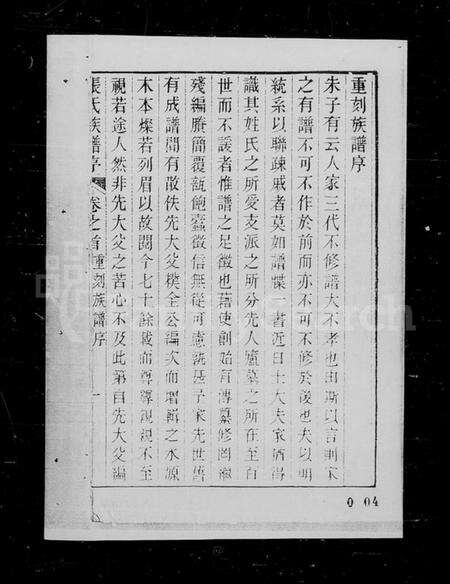 重刻族譜序
朱子有云人家三代不修譜大不孝也由斯以言則家
之有譜不可不作於前而亦不可不修於後也夫以明
統系以聯疎戚者莫如譜牒一書近日士大夫家猶得
識其姓氏之所受支派之所分先人廬墓之所在至百
世而不諼者惟譜之足徵也藉使創始有傳纂修罔繼
殘編賸簡覆瓿飽蠹徵信無從可
家先世舊
有成譜間有散佚先大父樸全公編次而增輯之水源
木本燦若列眉以故閱今七十餘載而尊尊親親不至
視若途人然非先大父之苦心不及此第自先大父編
張氏族譜序 卷之首 重刻族譜序 一
0 04